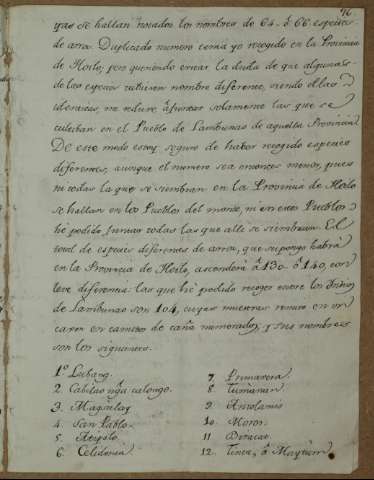 se hallan notados los nombres de 64. ó 66. especies
de arroz. Duplicado numero tenia yo recogido en la Provincia
de Yloilo; pero queriendo evitar la duda de que algunas
de las especies tubiesen nombre diferente, siendo ellas
identicas, me reduxe á juntar solamente las que se
cultiban en el Pueblo de Lambunao de aquella Provincia.
De este modo estoy seguro de haber recogido especies
diferentes, aunque el numero sea entonces menor, pues
ni todas las que se siembran en la Provincia de Yloilo
se hallan en los Pueblos del monte, ni en estos Pueblos
hé podido juntar todas las que alli se siembran. El
total de especies diferentes de arroz, que supongo habrá
en la Provincia de Yloilo, ascenderá á 130. ó 140, con
leve diferencia: las que hé podido recoger entre los Yndios
de Lambunao son 104, cuyas muestras remito en un
caxon en cañutos de caña numerados, y sus nombres
son los siguientes.
1º Lubang.
2. Cabutao nga calongo.
3. Magsalay
4. San Pablo.
5.
6. Celedonia
7. Primavera.
8. Tumanan
9.
10. Moros.
11
12. ó